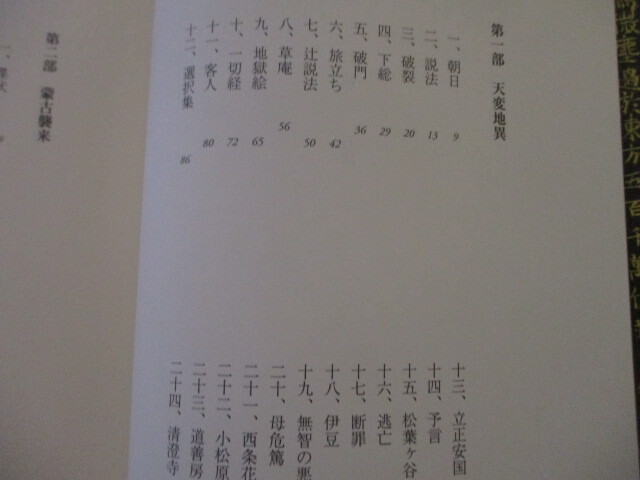 第一部　天変地異
一、朝日　9
二、説法　13
三、破裂　20
四、下総　29
五、破門　36
六、旅立ち　42
七、辻説法　50
八、草庵　56
九、地獄絵　65
十、一切経　72
十一、客人　80
十二、選択集　86
十三、立正安国
十四、予言
十五、松葉ヶ谷
十六、逃亡
十七、断罪
十八、伊豆
十九、無智の悪
二十、母危篤
二十一、西条花
二十二、小松原
二十三、道善房
二十四、清澄寺
第二部　蒙古襲来